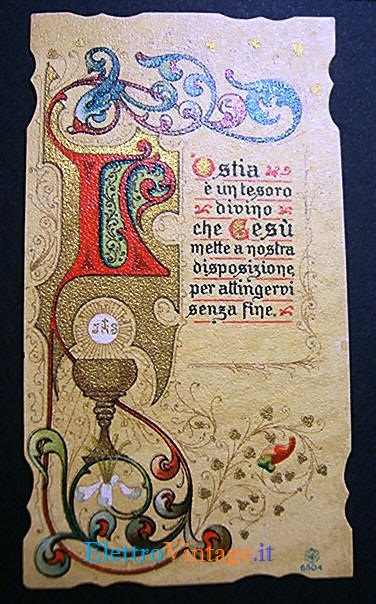 L'Ostia
è un tesoro
divino
che Gesù
mette a nostra
disposizione
per attingervi
senza fine.
JHS
ElettroVintage.it
6504